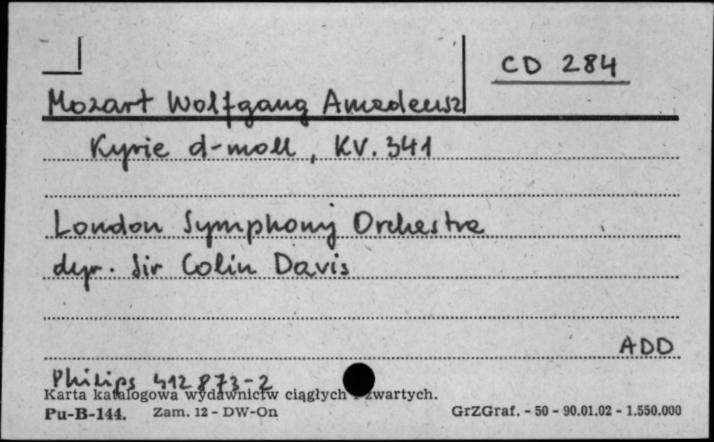 CD 284
Mozart Wolfgang Amadeusz
Kyrie d-moll, KV. 341
London Symphony Orchestra
dyr. Sir Colin Davis
ADD
Philips 412 873-2
Karta katalogowa wydawnictw ciągłych zwartych.
Pu-B-144. Zam. 12 - DW-On GrZGraf. - 50 - 90.01.02 - 1.550.000